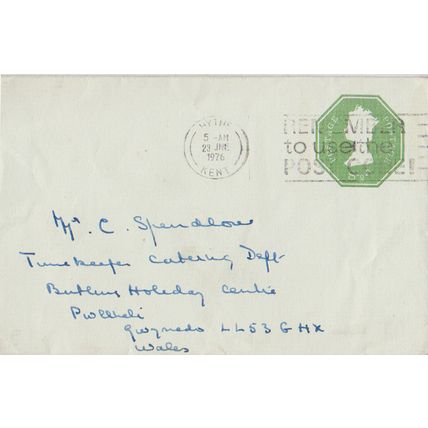 HYTHE
5 - AM
29 JNE
1976
KENT
REMEMBER
to use the
POST CODE
POSTAGE
Mr. C. Spendlow
Timekeeper Catering Dept
Butlins Holiday Centre
Pwllheli
Gwynedd LL53 6HX
Wales